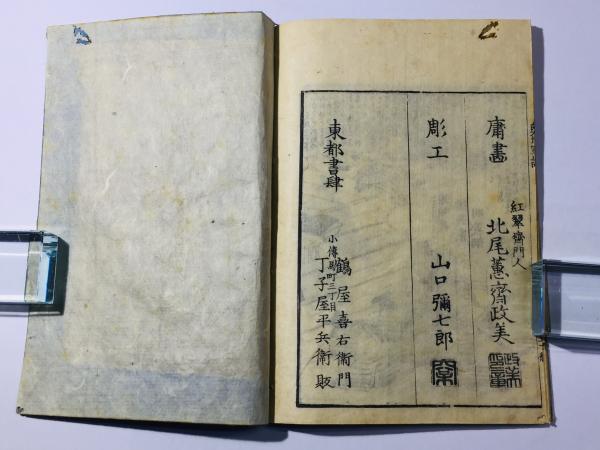 庸畵
紅翠齋門人
北尾蕙齋政美
彫工
山口彌七郎
東都書肆
鶴屋喜右衞門
小傳馬町三丁目
丁子屋平兵衞販